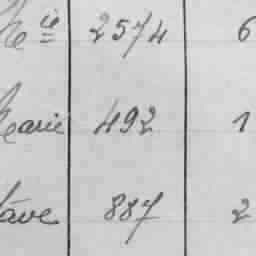 Cie 2574 6
Marie 492 1
tave 887 2